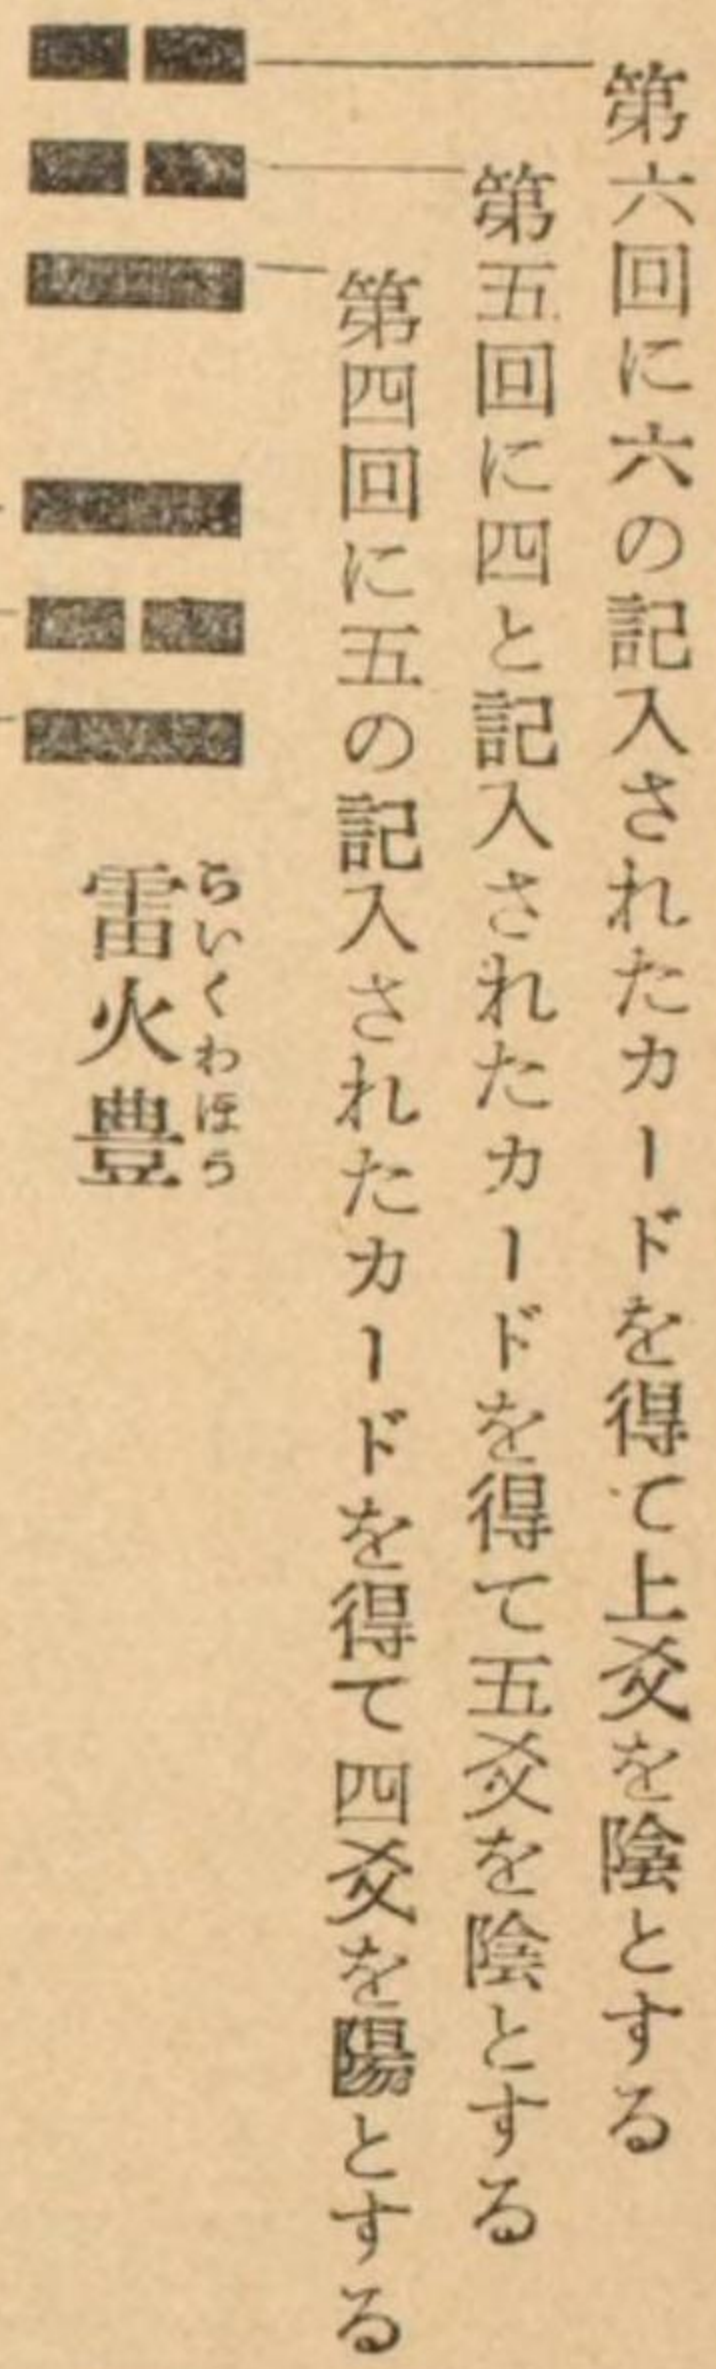 第六回に六の記入されたカードを得て上爻を陰とする
第五回に四と記入されたカードを得て五爻を陰とする
第四回に五の記入されたカードを得て四爻を陽とする
らいくわほう
雷火豊